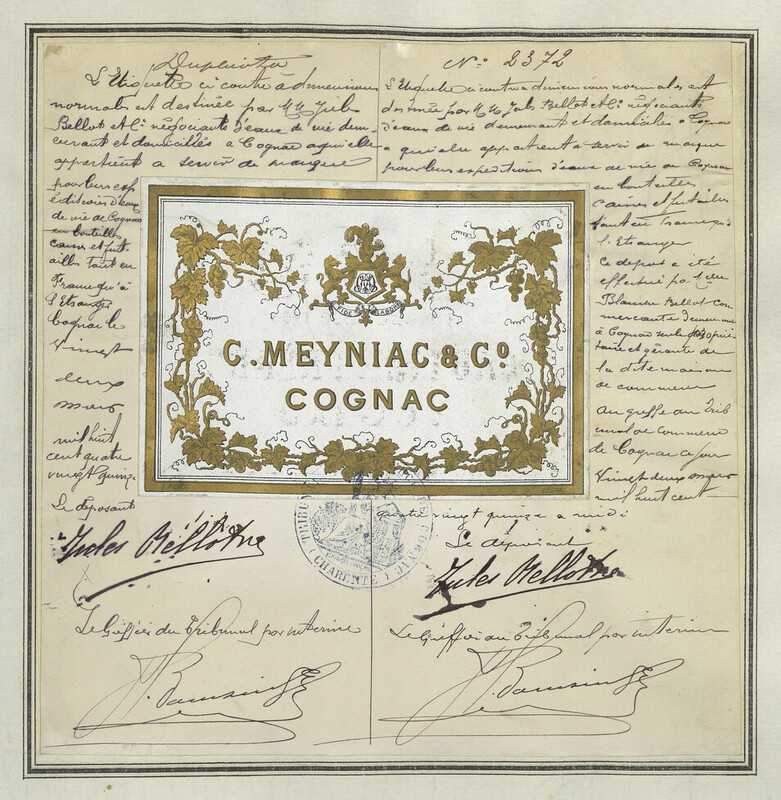 Duplicata
L'Etiquette ci contre à dimensions
normales est destinée par MM Jules
Bellot & Cie négociants d'eaux de vie demeu-
urant et domiciliés à Cognac a qu'elle
appartient a servir de marque
pour leurs exp
éditions d'eaux
de vie de Cognac
en bouteilles
caisses et fut
ailles tant en
France qu'à
l'Etranger
Cognac le
Vingt
deux
mars
mil huit
cent quatre
vingt quinze
Le déposant
Jules Bellot & Cie
Le Greffier du Tribunal par intérim
No 2372
L'Etiquette ci contre a dimensions normales est
destinée par MM Jules Bellot & Cie négociants
d'eaux de vie demeurant et domiciliés à Cognac
a qu'elle appartient a servir de marque
pour leurs expéditions d'eaux de vie de Cognac
en bouteilles
caisses et futailles
tant en France qu'à
l'Etranger
Ce dépôt a été
effectué par
Blanche Bellot com
mercante demeurant
à Cognac proprié
taire et gérante de
la dite maison
de commerce
Au greffe du Trib
unal de commerce
de Cognac ce jour
Vingt deux mars
mil huit cent
quatre vingt quinze a midi
Le déposant
Jules Bellot & Cie
Le Greffier du Tribunal par intérim
C. MEYNIAC & Co
COGNAC
TRIBUNAL DE COMMERCE COGNAC
(CHARENTE)